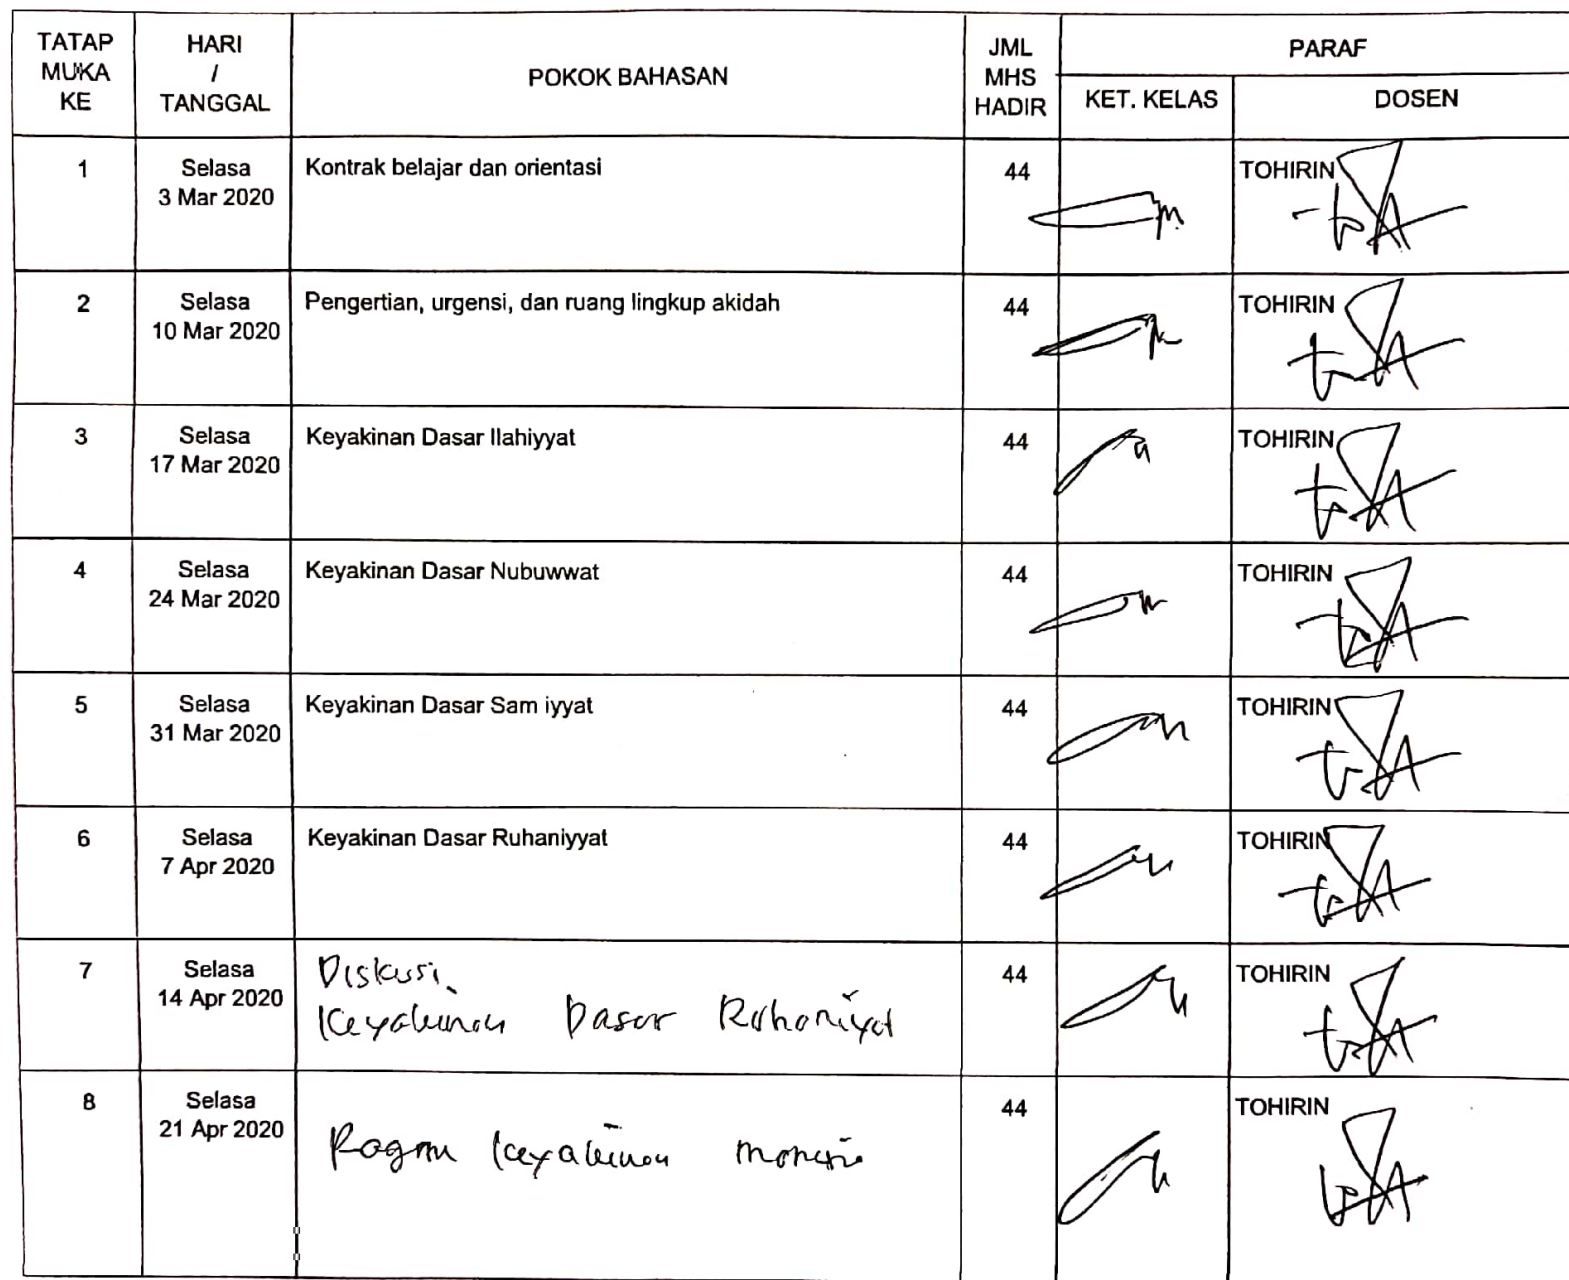 TATAP MUKA KE
HARI / TANGGAL
POKOK BAHASAN
JML MHS HADIR
PARAF
KET. KELAS
DOSEN
1
Selasa
3 Mar 2020
Kontrak belajar dan orientasi
44
TOHIRIN
2
Selasa
10 Mar 2020
Pengertian, urgensi, dan ruang lingkup akidah
44
TOHIRIN
3
Selasa
17 Mar 2020
Keyakinan Dasar Ilahiyyat
44
TOHIRIN
4
Selasa
24 Mar 2020
Keyakinan Dasar Nubuwwat
44
TOHIRIN
5
Selasa
31 Mar 2020
Keyakinan Dasar Sam iyyat
44
TOHIRIN
6
Selasa
7 Apr 2020
Keyakinan Dasar Ruhaniyyat
44
TOHIRIN
7
Selasa
14 Apr 2020
Diskusi
Keyakinan Dasar Ruhaniyat
44
TOHIRIN
8
Selasa
21 Apr 2020
Ragam keyakinan manusia
44
TOHIRIN